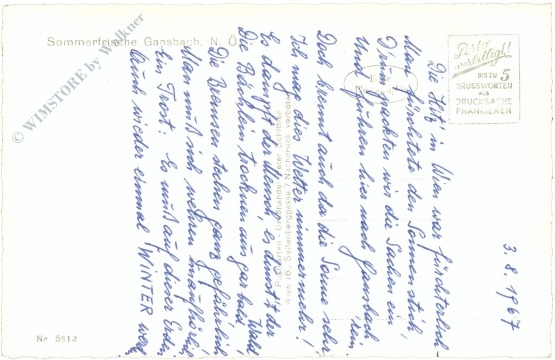 Sommerfrische Gansbach, N. Ö.
© WIMSTORE by Walkner
Porto
verbilligt!
BIS ZU 5
GRUSSWORTEN
ALS
DRUCKSACHE
FRANKIEREN
3. 8. 1967
Die Hitz' in Wien war fürchterlich
Man fürchtete den Sonnenstich,
Drum packten wir die Sachen ein
Und fuhren hier nach Gansbach 'rein.
Doch brennt auch da die Sonne sehr,
Ich mag dies Wetter nimmermehr!
Es dampft der Mensch, es dunst' der Wald
Die Bächlein trocknen aus gar bald.
Die Bremsen stechen ganz gefährlich
Man muß sich wehren unaufhörlich
Ein Trost: Es muß auf dieser Erden
Auch wieder einmal WINTER werd
Wien 10., Nachdruck verboten
Nr 5812